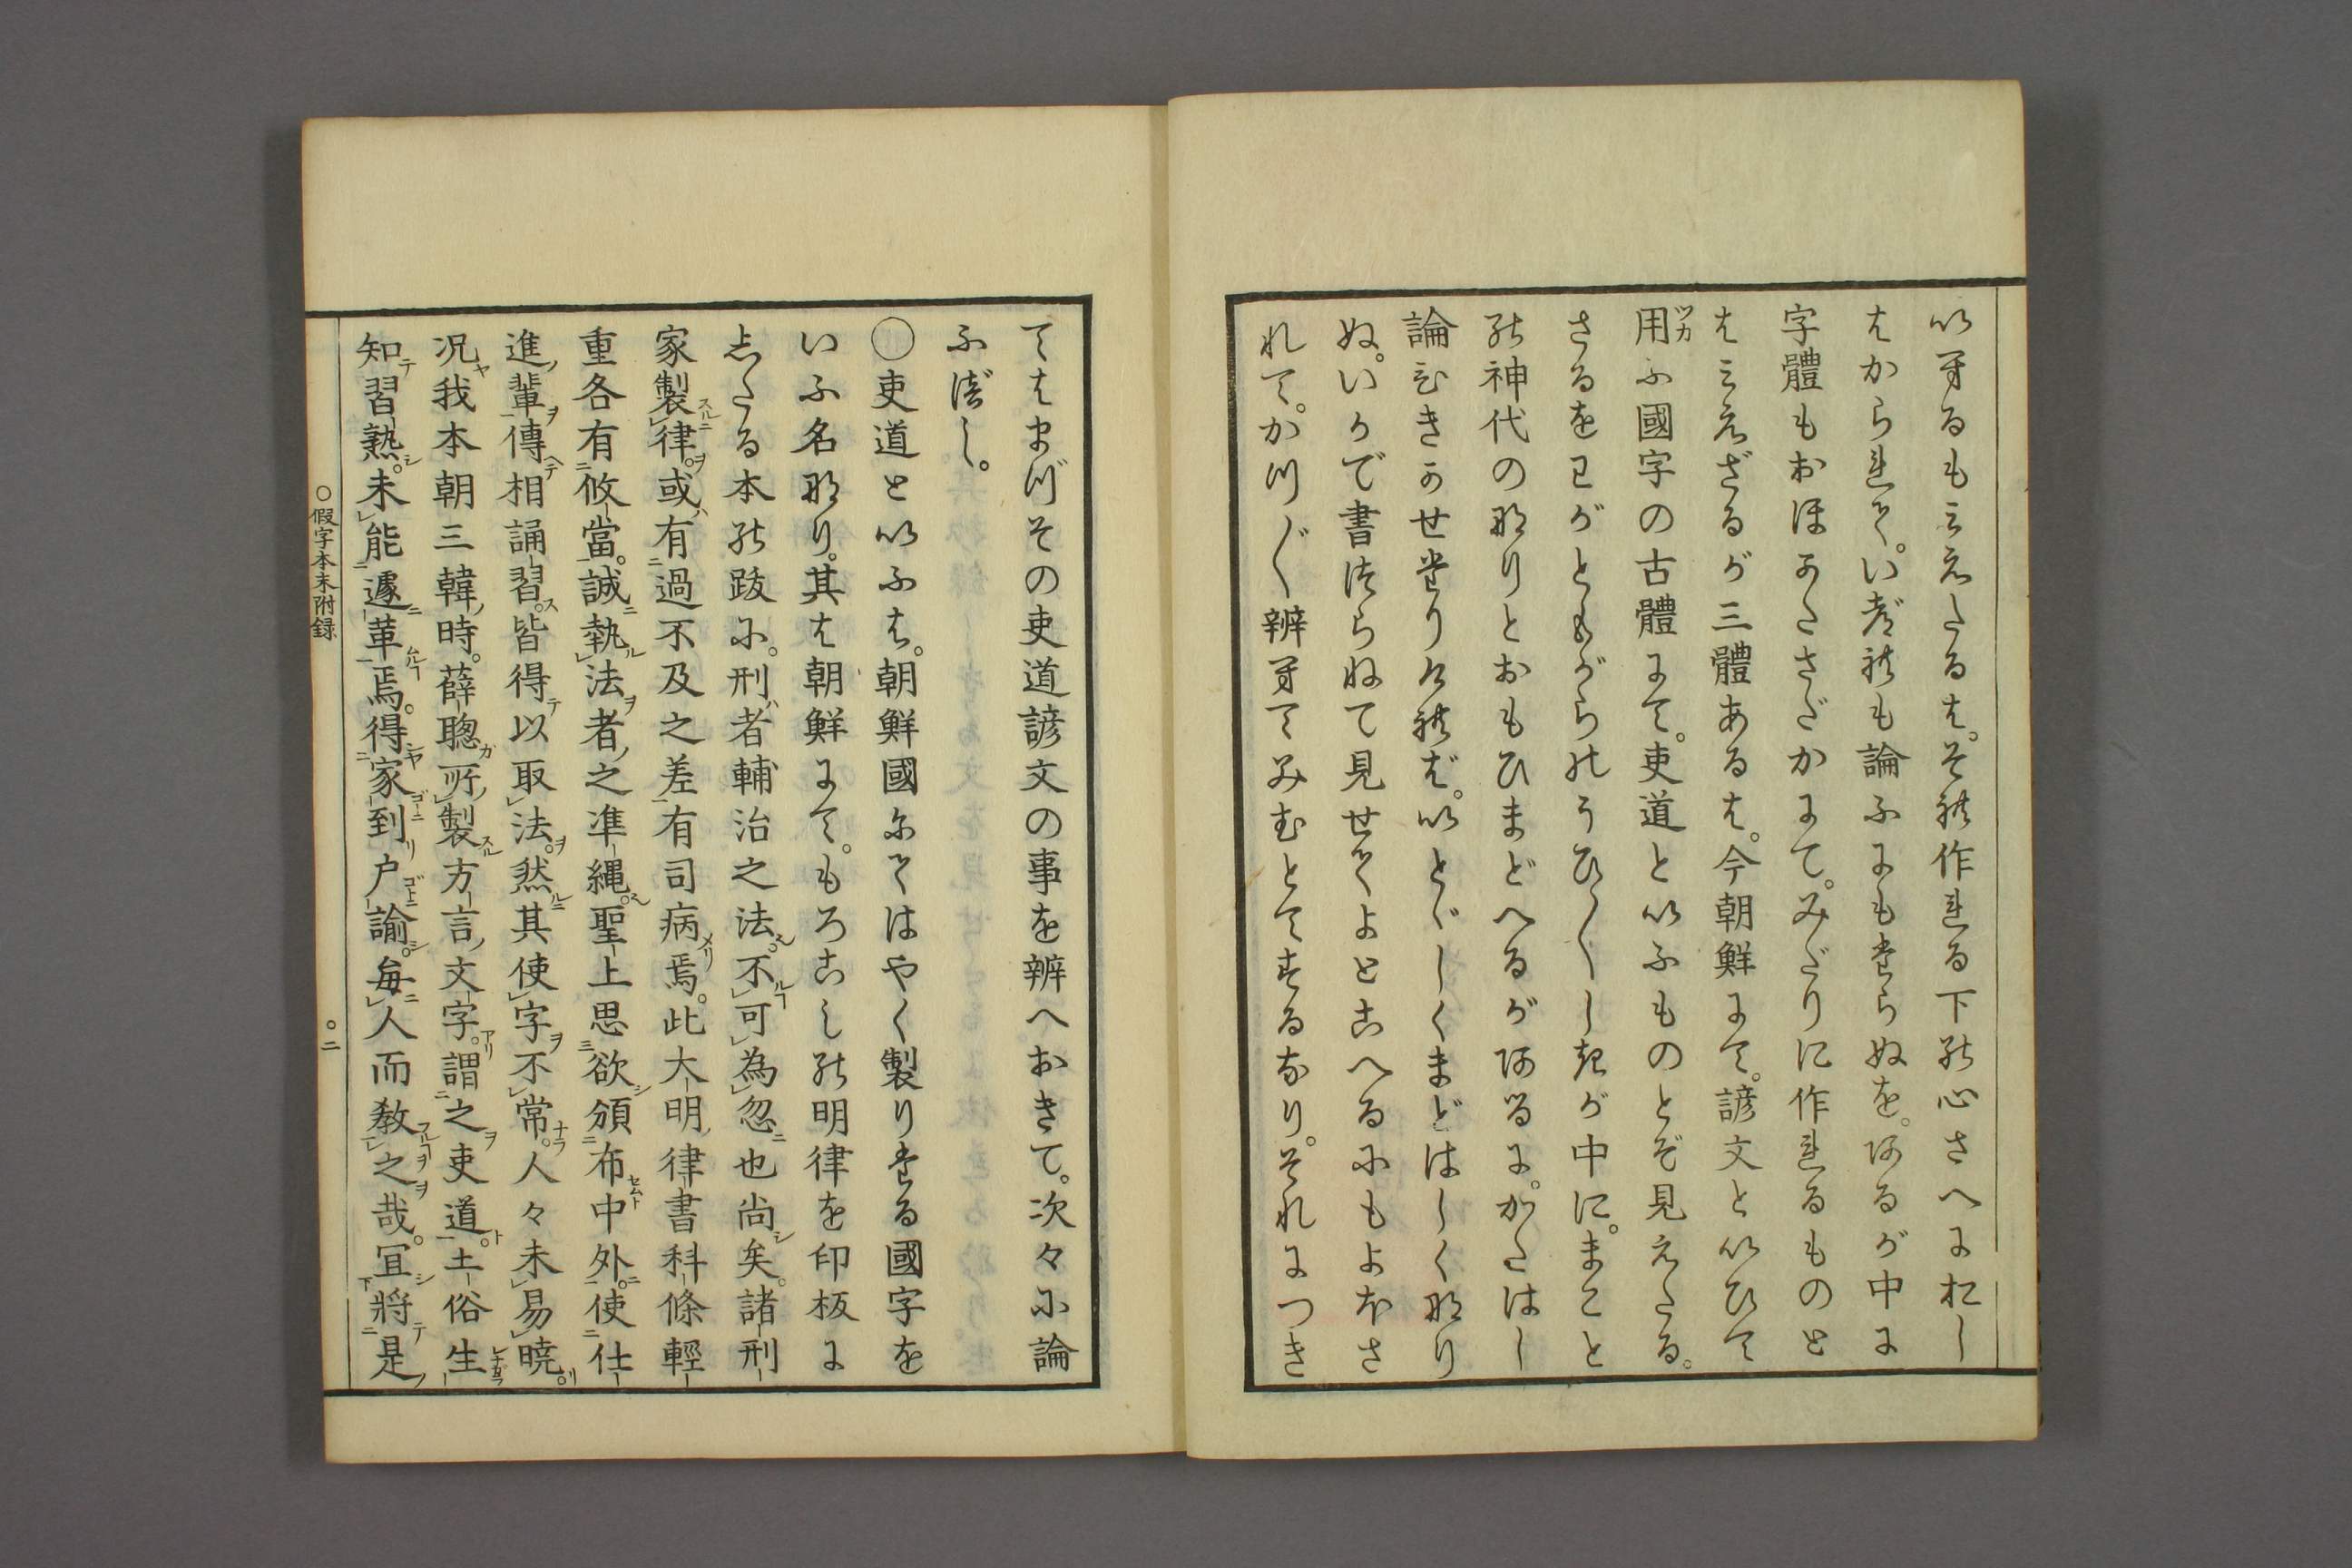 いへるも云えたるは。そは作れる下の心さへにおし
はかられて。いづれも論ふにもたらぬを。あるが中に
字體もおほかたさだかにて。みだりに作れるものと
は云えざるが三體あるは。今朝鮮にて。諺文といひて
用ふ國字の古體にて。吏道といふものとぞ見えたる。
さるをわがともがらのうひ〳〵しきが中に。まこと
の神代のなりとおもひまどへるがあるに。かたはし
論ひきかせたりければ。いと〴〵しくまどはしくなり
ぬ。いかで書つらねて見せてよとこへるにもよほさ
れて。かつ〴〵辨へてみむとてするなり。それにつき
てはまづその吏道諺文の事を辨へおきて。次々に論
ふべし。
○吏道といふは。朝鮮國にてはやく製りたる國字を
いふ名なり。其は朝鮮にて。もろこしの明律を印板に
したる本の跋に。刑者輔治之法。不可為忽也尚矣。諸刑
家製律。或有過不及之差有司病焉。此大明律書科條輕
重各有攸當。誠執法者之凖繩。聖上思欲頒布中外。使仕
進輩傳相誦習。皆得以取法。然其使字不常。人々未易曉。
况我本朝三韓時。薛聰所製方言文字。謂之吏道。土俗生
知習熟。未能遽革焉。得家到户諭。毎人而教之哉。冝將是
○假字本末附録
○二